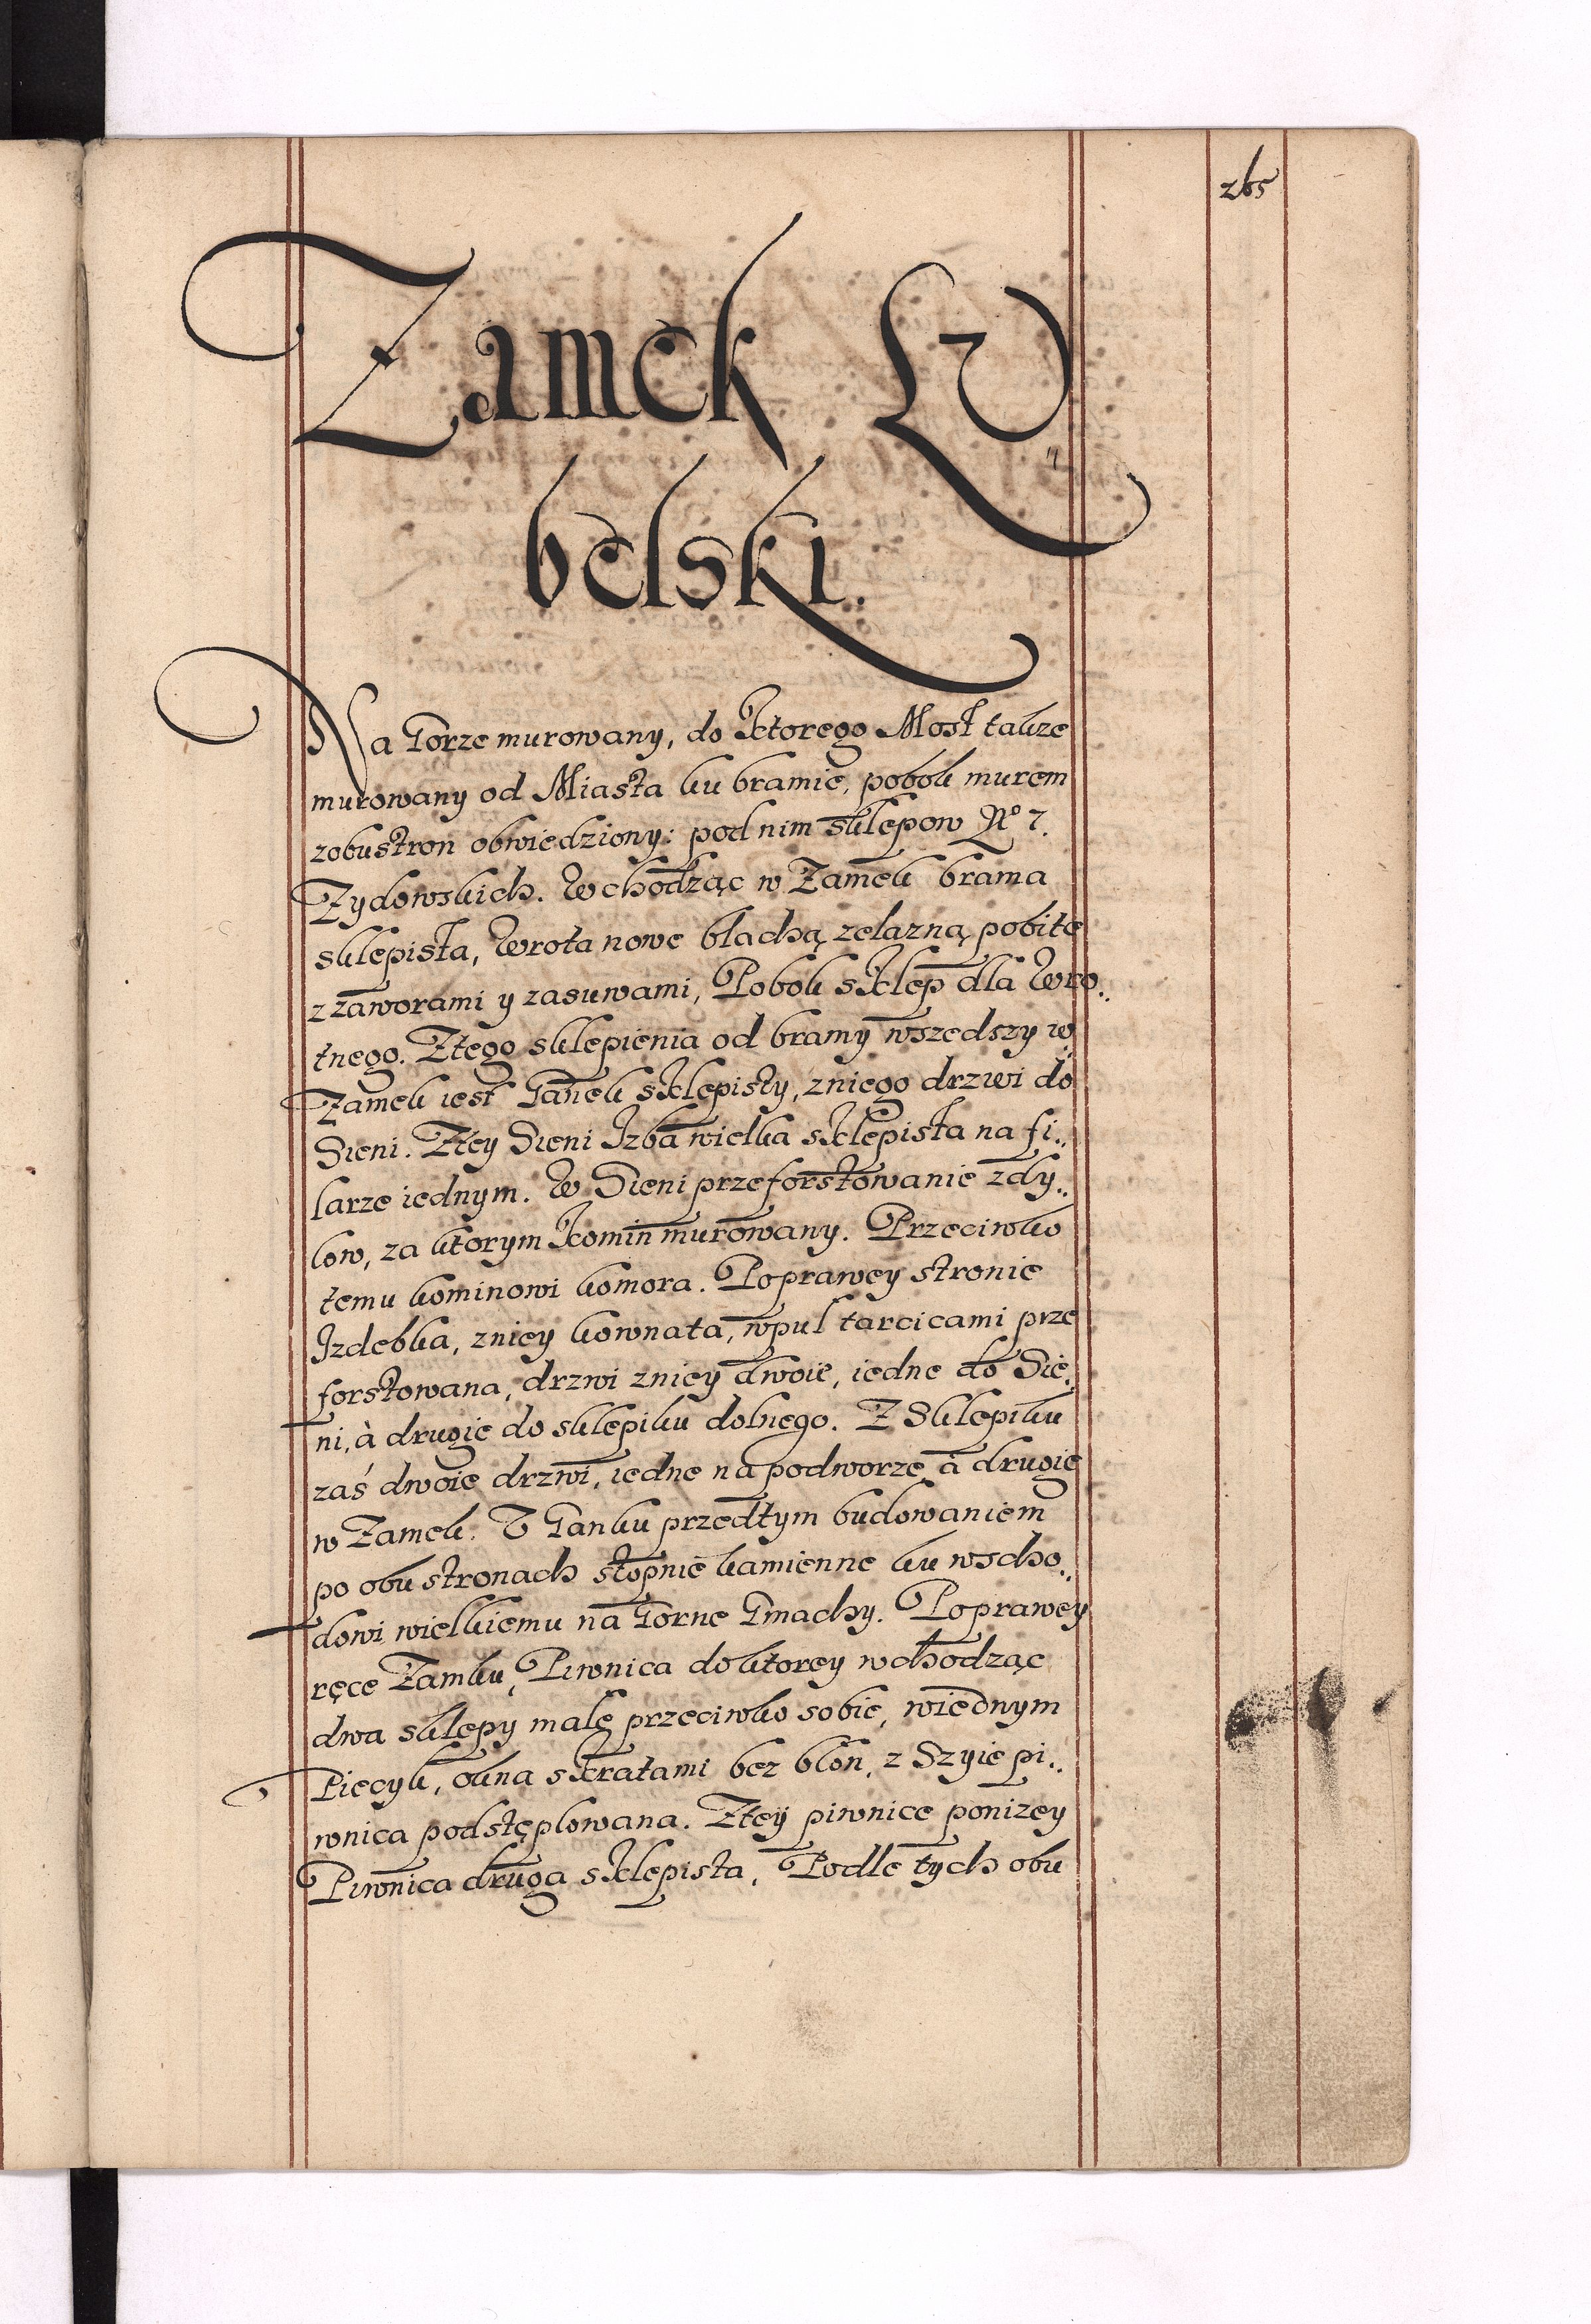 265
Zamek Lu„
belski.
Na Gorze murowany, do ktorego Most takze
murowany od Miasta ku bramie, pobok murem
zobustron obwiedziony: pod nim sklepow No 7.
Zydowskich. Wchodząc w Zamek brama
sklepista, Wrota nowe blachą zelazną pobite
z zaworami y zasuwami, Pobok sklep dla Wro„
tnego. Ztego sklepienia od bramy wszedszy w„
Zamek iest Ganek sklepisty, zniego drzwi do
Sieni. Ztey Sieni Izba wielka sklepista na fi„
larze iednym. W Sieni przeforstowanie zdy„
low, za ktorym komin murowany. Przeciwko
temu kominowi komora. Poprawey stronie
Izdebka, zniey kownata, wpul tarcicami prze
forstowana, drzwi zniey dwoie, iedne do Sie„
ni, à drugie do sklepiku dolnego. Z Sklepiku
zaś dwoie drzwi, iedne na podworze à drugie
w Zamek. U Ganku przedtym budowaniem
po obu stronach stopnie kamienne ku wscho„
dowi wielkiemu na Gorne Gmachy. Poprawey
ręce Zamku, Piwnica do ktorey wchodząc
dwa sklepy małe przeciwko sobie, wiednym
Piecyk, okna skratami bez błon, z Szyie pi„
wnica podstęplowana. Ztey piwnice ponizey
Piwnica druga sklepista, Podle tych obu